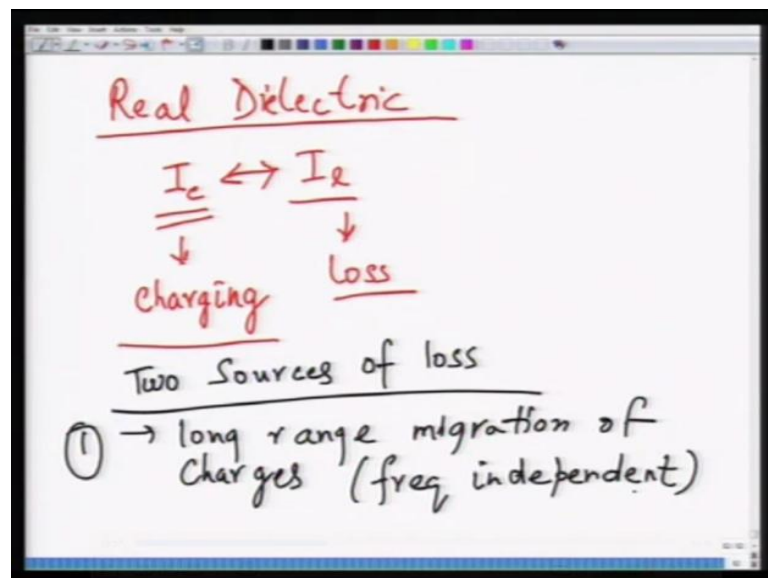 Real Dielectric
Ic ↔ Il
charging
loss
Two Sources of loss
① → long range migration of
Charges (freq independent)